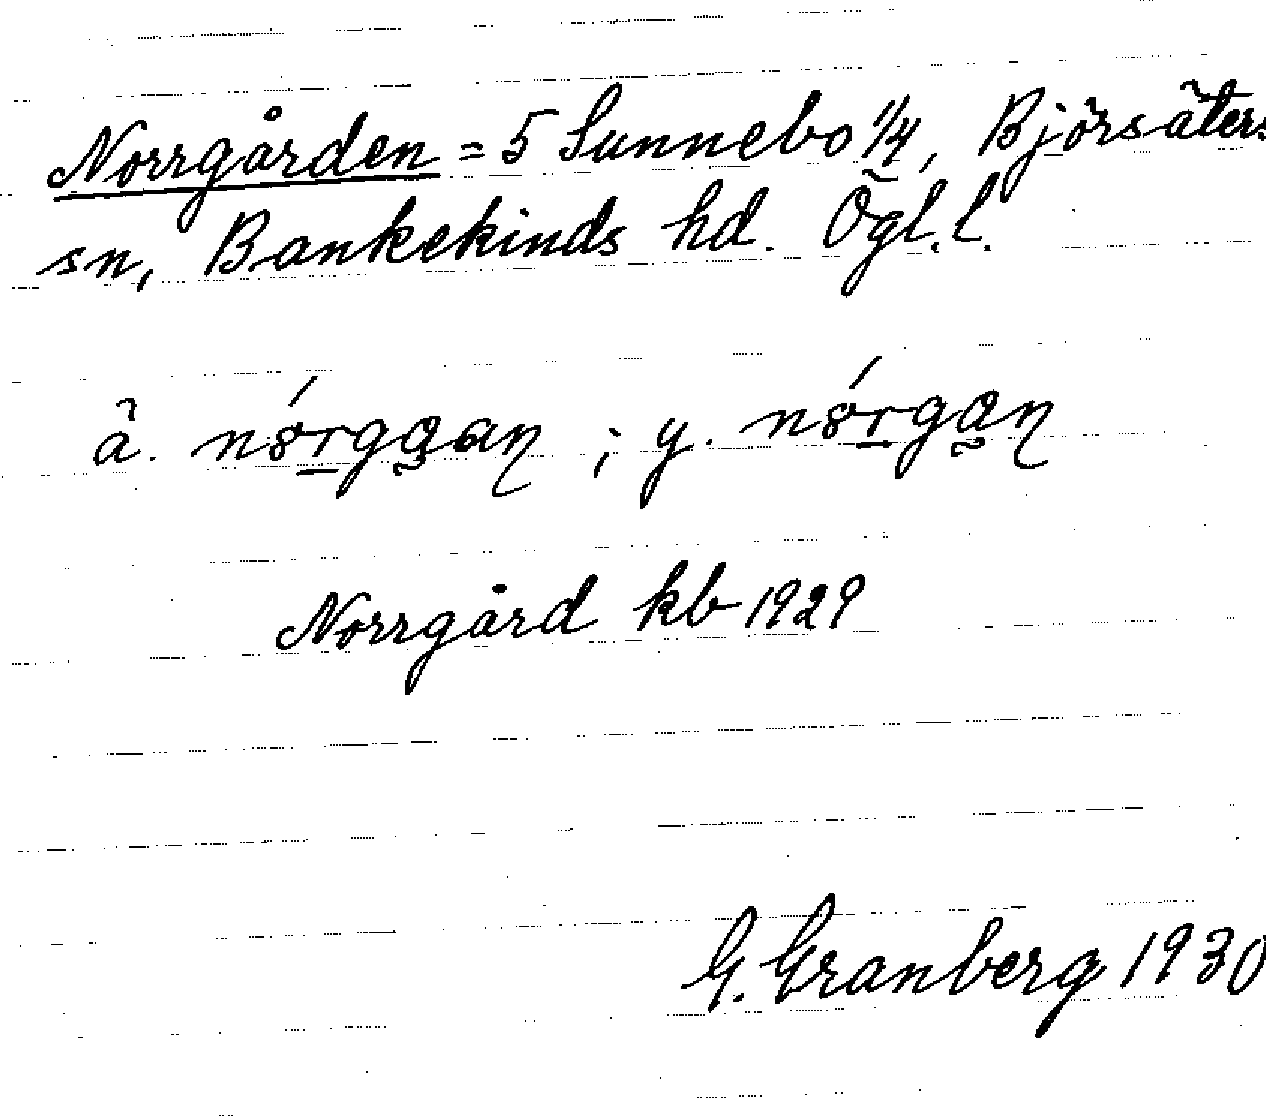 Norrgården = 5 Sunnebo 1/4, Björsäters
sn, Bankekinds hd. Ögl. l.
ä. ; y.
Norrgård kb 1929
G. Granberg 1930